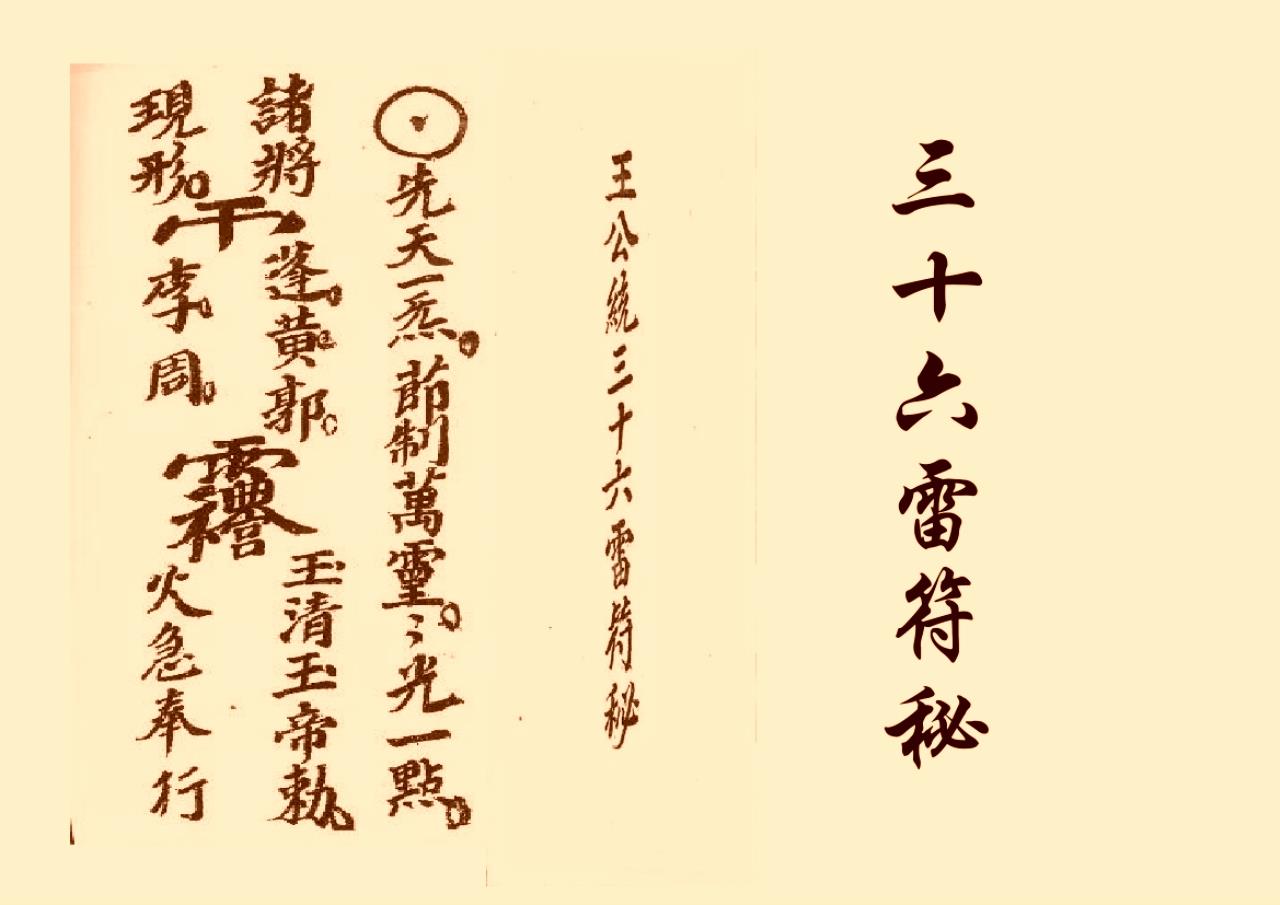 三十六雷符秘
王公統三十六雷符秘
先天一炁。節制萬靈。〻光一點。
諸將
現形。
蓬。黃。郭。
李。周。
玉清玉帝勅。
火急奉行